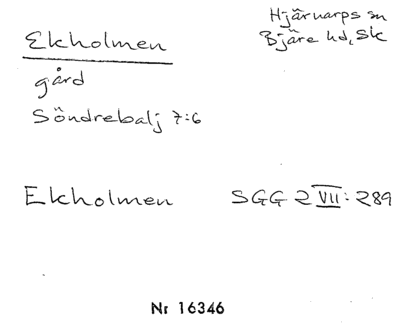 Ekholmen
gård
Söndrebalj 7:6
Hjärnarps sn
Bjäre hd, Sk
Ekholmen SGG 2 VII: 289
Nr 16346